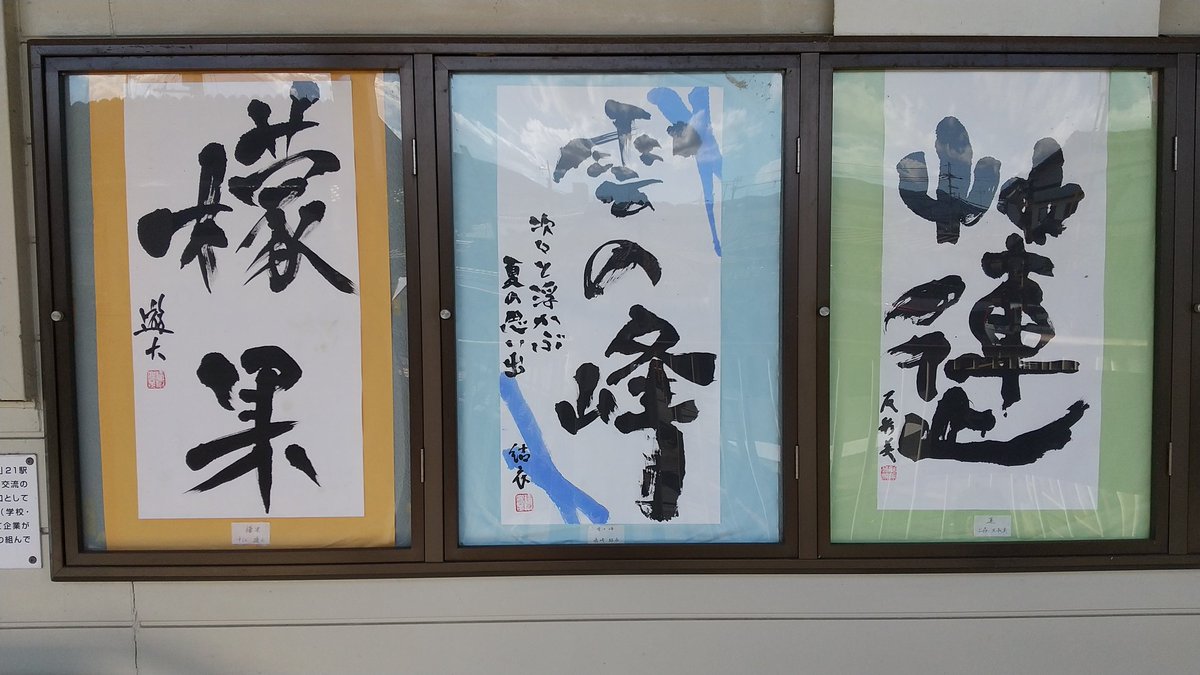 檬果
遊大
雲の峰
次々と浮かぶ
夏の思い出
結衣
蓮
21駅
交流の
として
(学校・
企業が
組んで